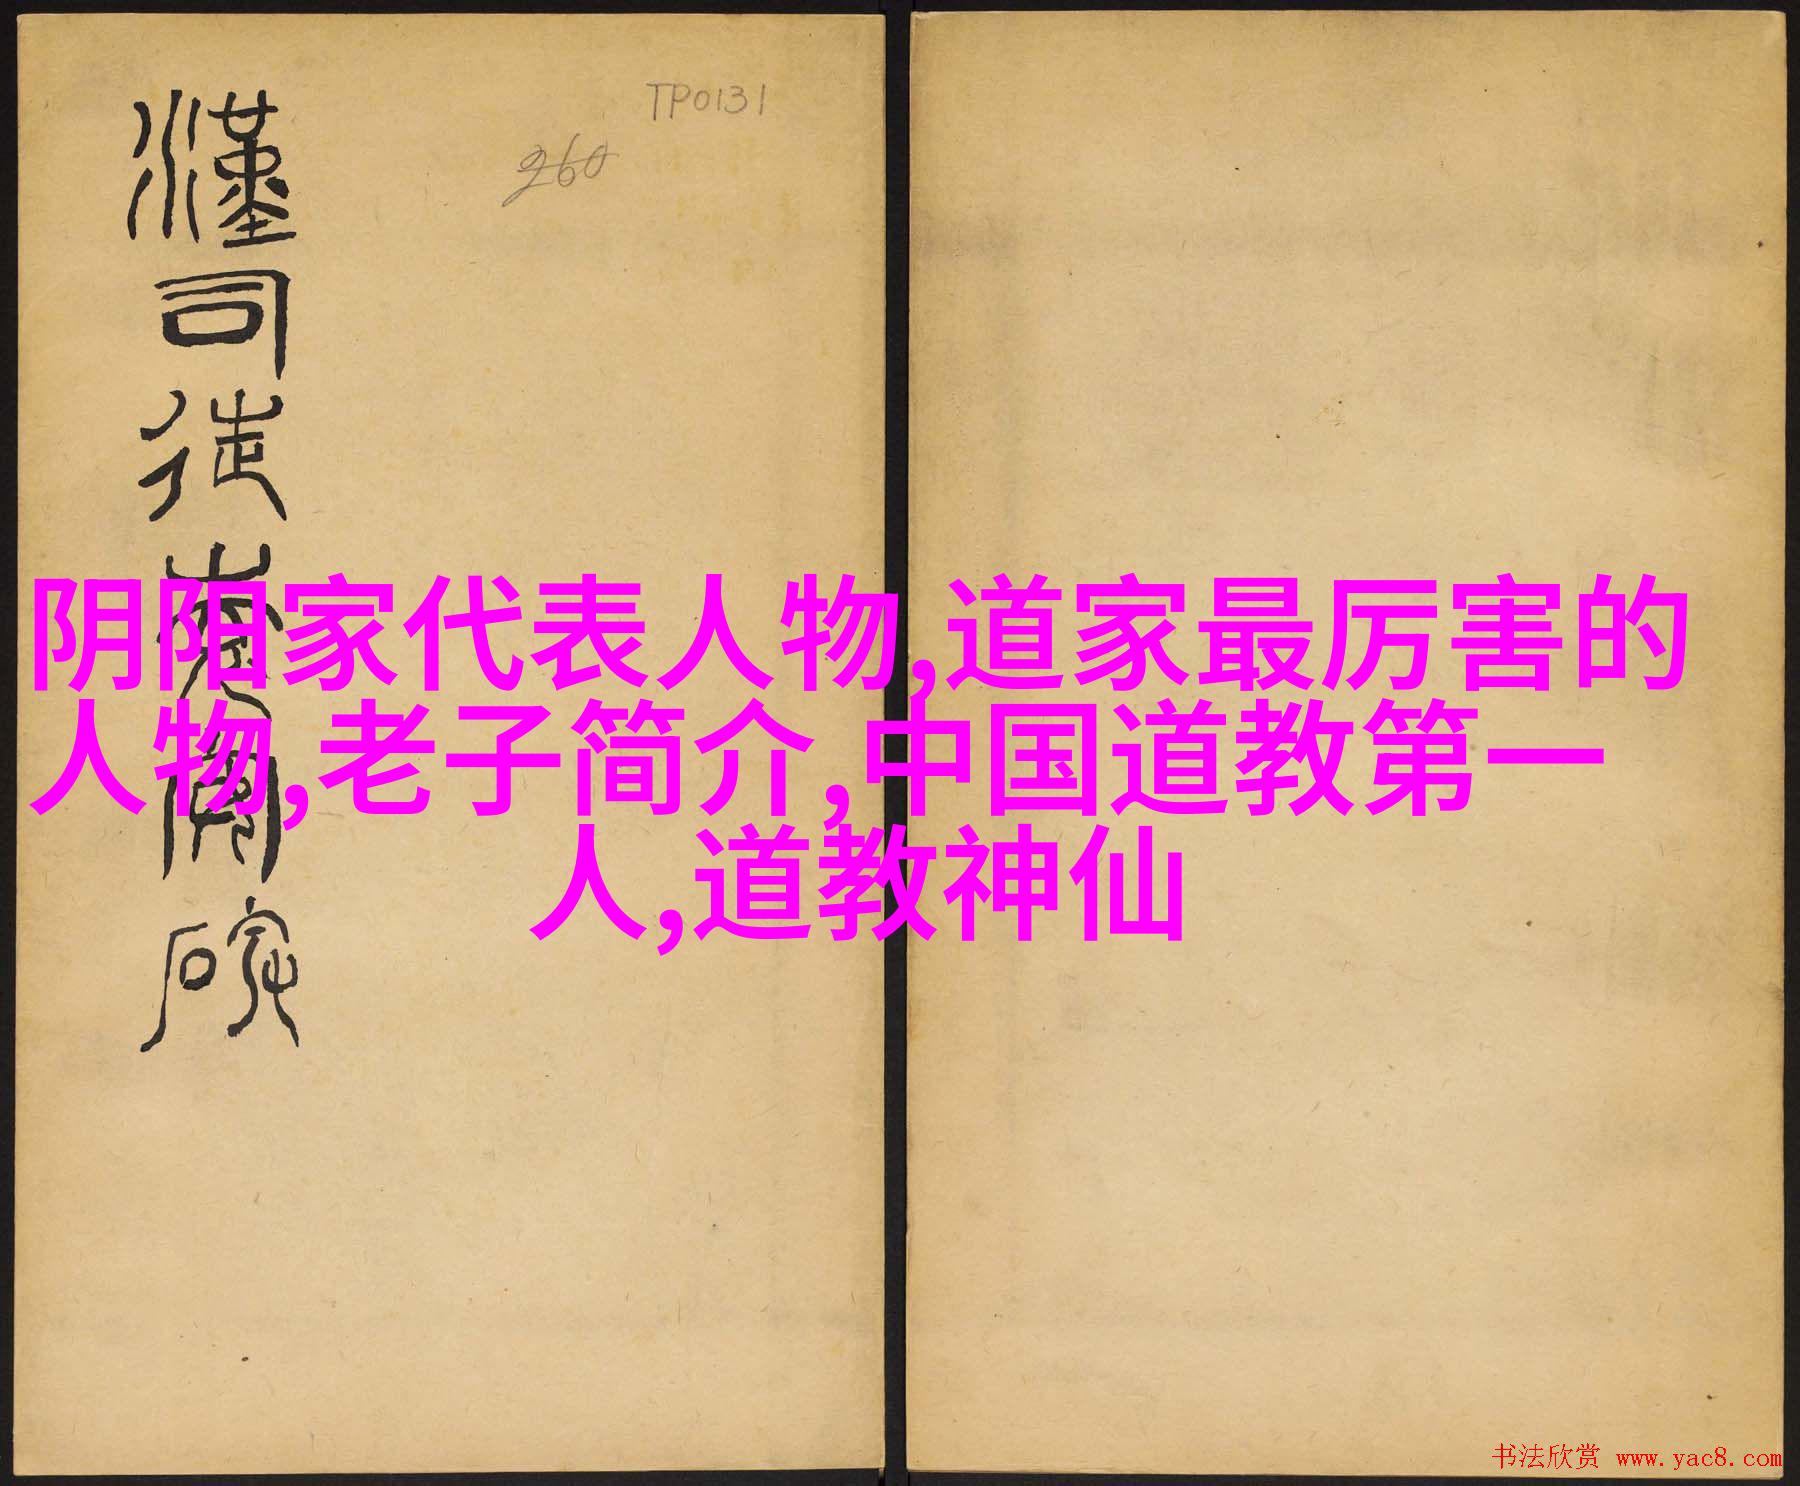 TP0131
260
漢司徒袁安碑
阴阳家代表人物,道家最厉害的
人物,老子简介,中国道教第一
人,道教神仙
书法欣赏 www.yac8.com